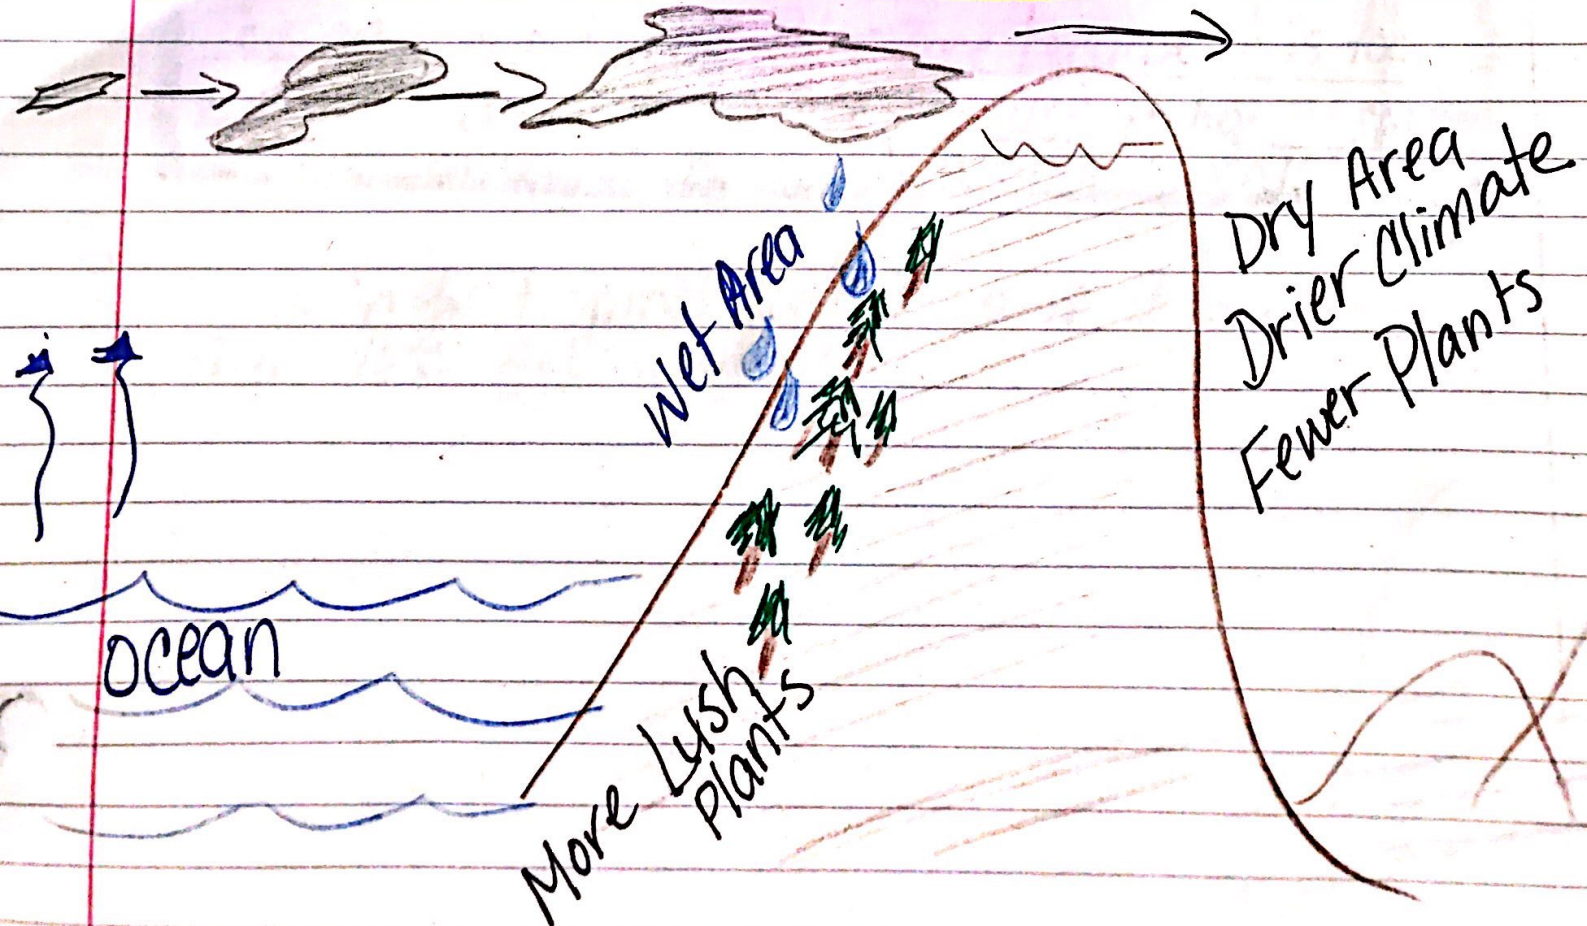 Wet Area
Dry Area
Drier Climate
Fewer Plants
ocean
More Lush
Plants